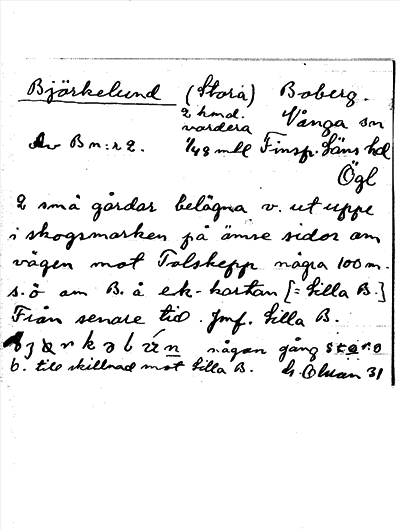 Björkelund (Stora) Boberg.
2 hmd. Vånga sn
vardera
Av B n:r 2. 1/48 mtl Finsp. läns hd
Ögl
2 små gårdar belägna v. ut uppe
i skogsmarken på ömse sidor om
vägen mot Tolskepp några 100 m.
s.ö om B. å ek-kartan [= Lilla B.]
Från senare tid. Jmf. Lilla B.
någon gång stora
b. till skillnad mot Lilla B. 31